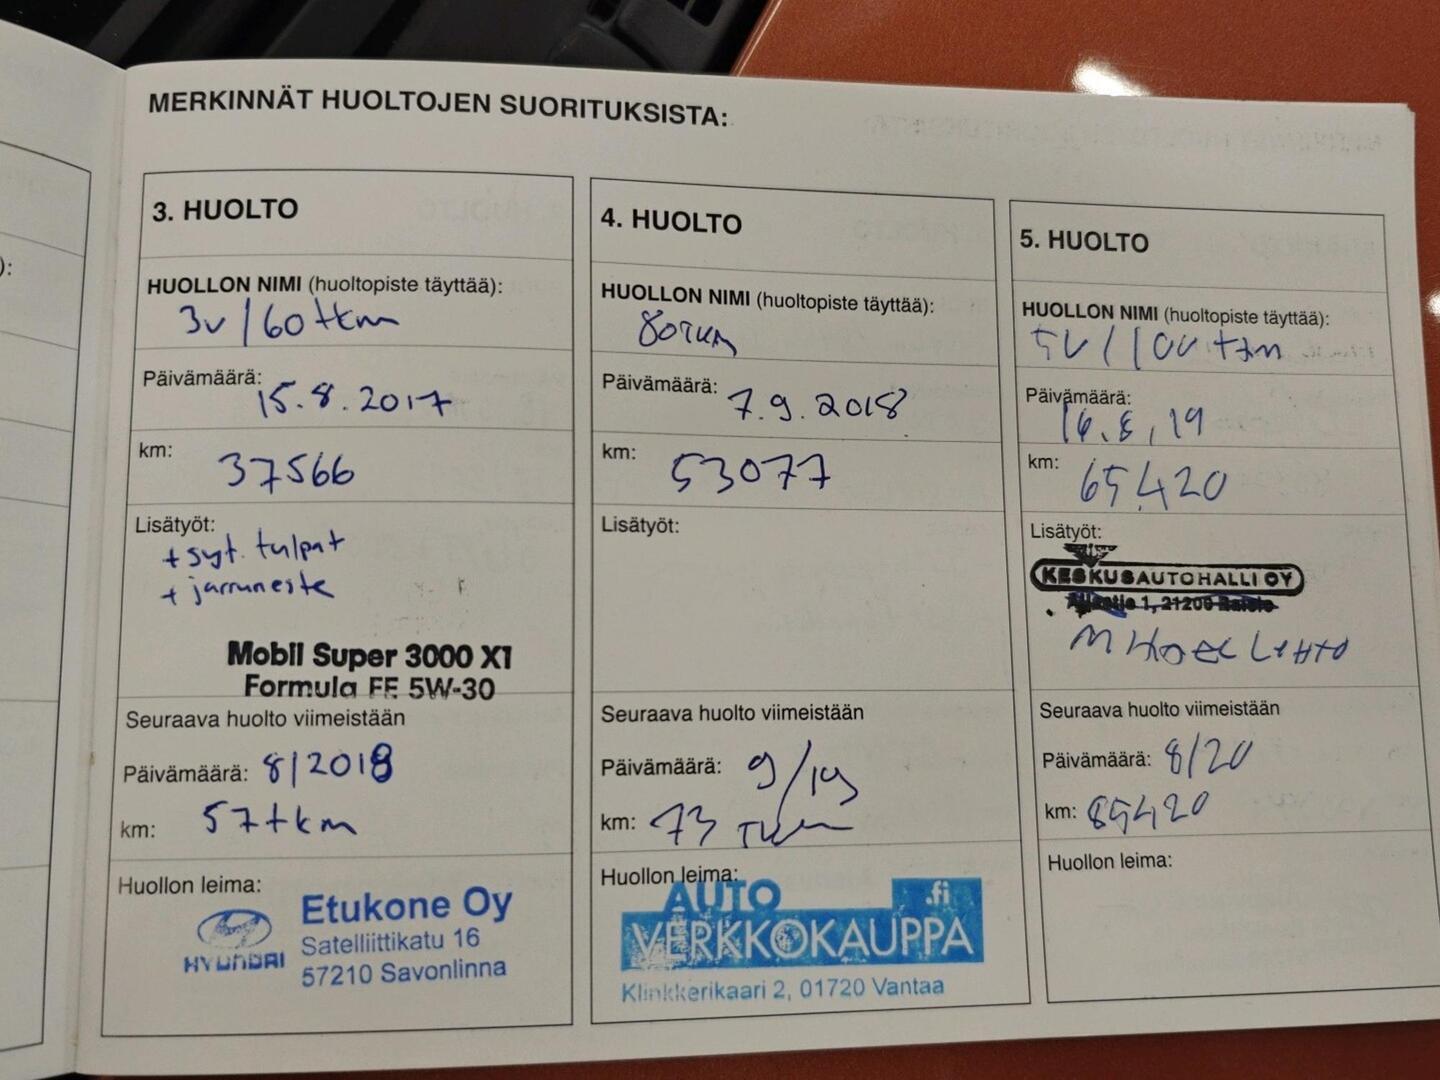 MERKINNÄT HUOLTOJEN SUORITUKSISTA:
3. HUOLTO
HUOLLON NIMI (huoltopiste täyttää):
3v/60tkm
Päivämäärä: 15.8.2017
km: 37566
Lisätyöt:
+ syt. tulpat
+ jarruneste
Mobil Super 3000 X1
Formula FE 5W-30
Seuraava huolto viimeistään
Päivämäärä: 8/2018
km: 57tkm
Huollon leima:
HYUNDAI
Etukone Oy
Satelliittikatu 16
57210 Savonlinna
4. HUOLTO
HUOLLON NIMI (huoltopiste täyttää):
80TKM
Päivämäärä: 7.9.2018
km: 53077
Lisätyöt:
Seuraava huolto viimeistään
Päivämäärä: 9/19
km: 73 TKM
Huollon leima:
AUTO
VERKKOKAUPPA
.fi
Klinkkerikaari 2, 01720 Vantaa
5. HUOLTO
HUOLLON NIMI (huoltopiste täyttää):
5V/100tkm
Päivämäärä: 16.8.19
km: 65420
Lisätyöt:
KESKUSAUTOHALLI OY
1, 21200 Raisio
Seuraava huolto viimeistään
Päivämäärä: 8/20
km: 85420
Huollon leima:
):